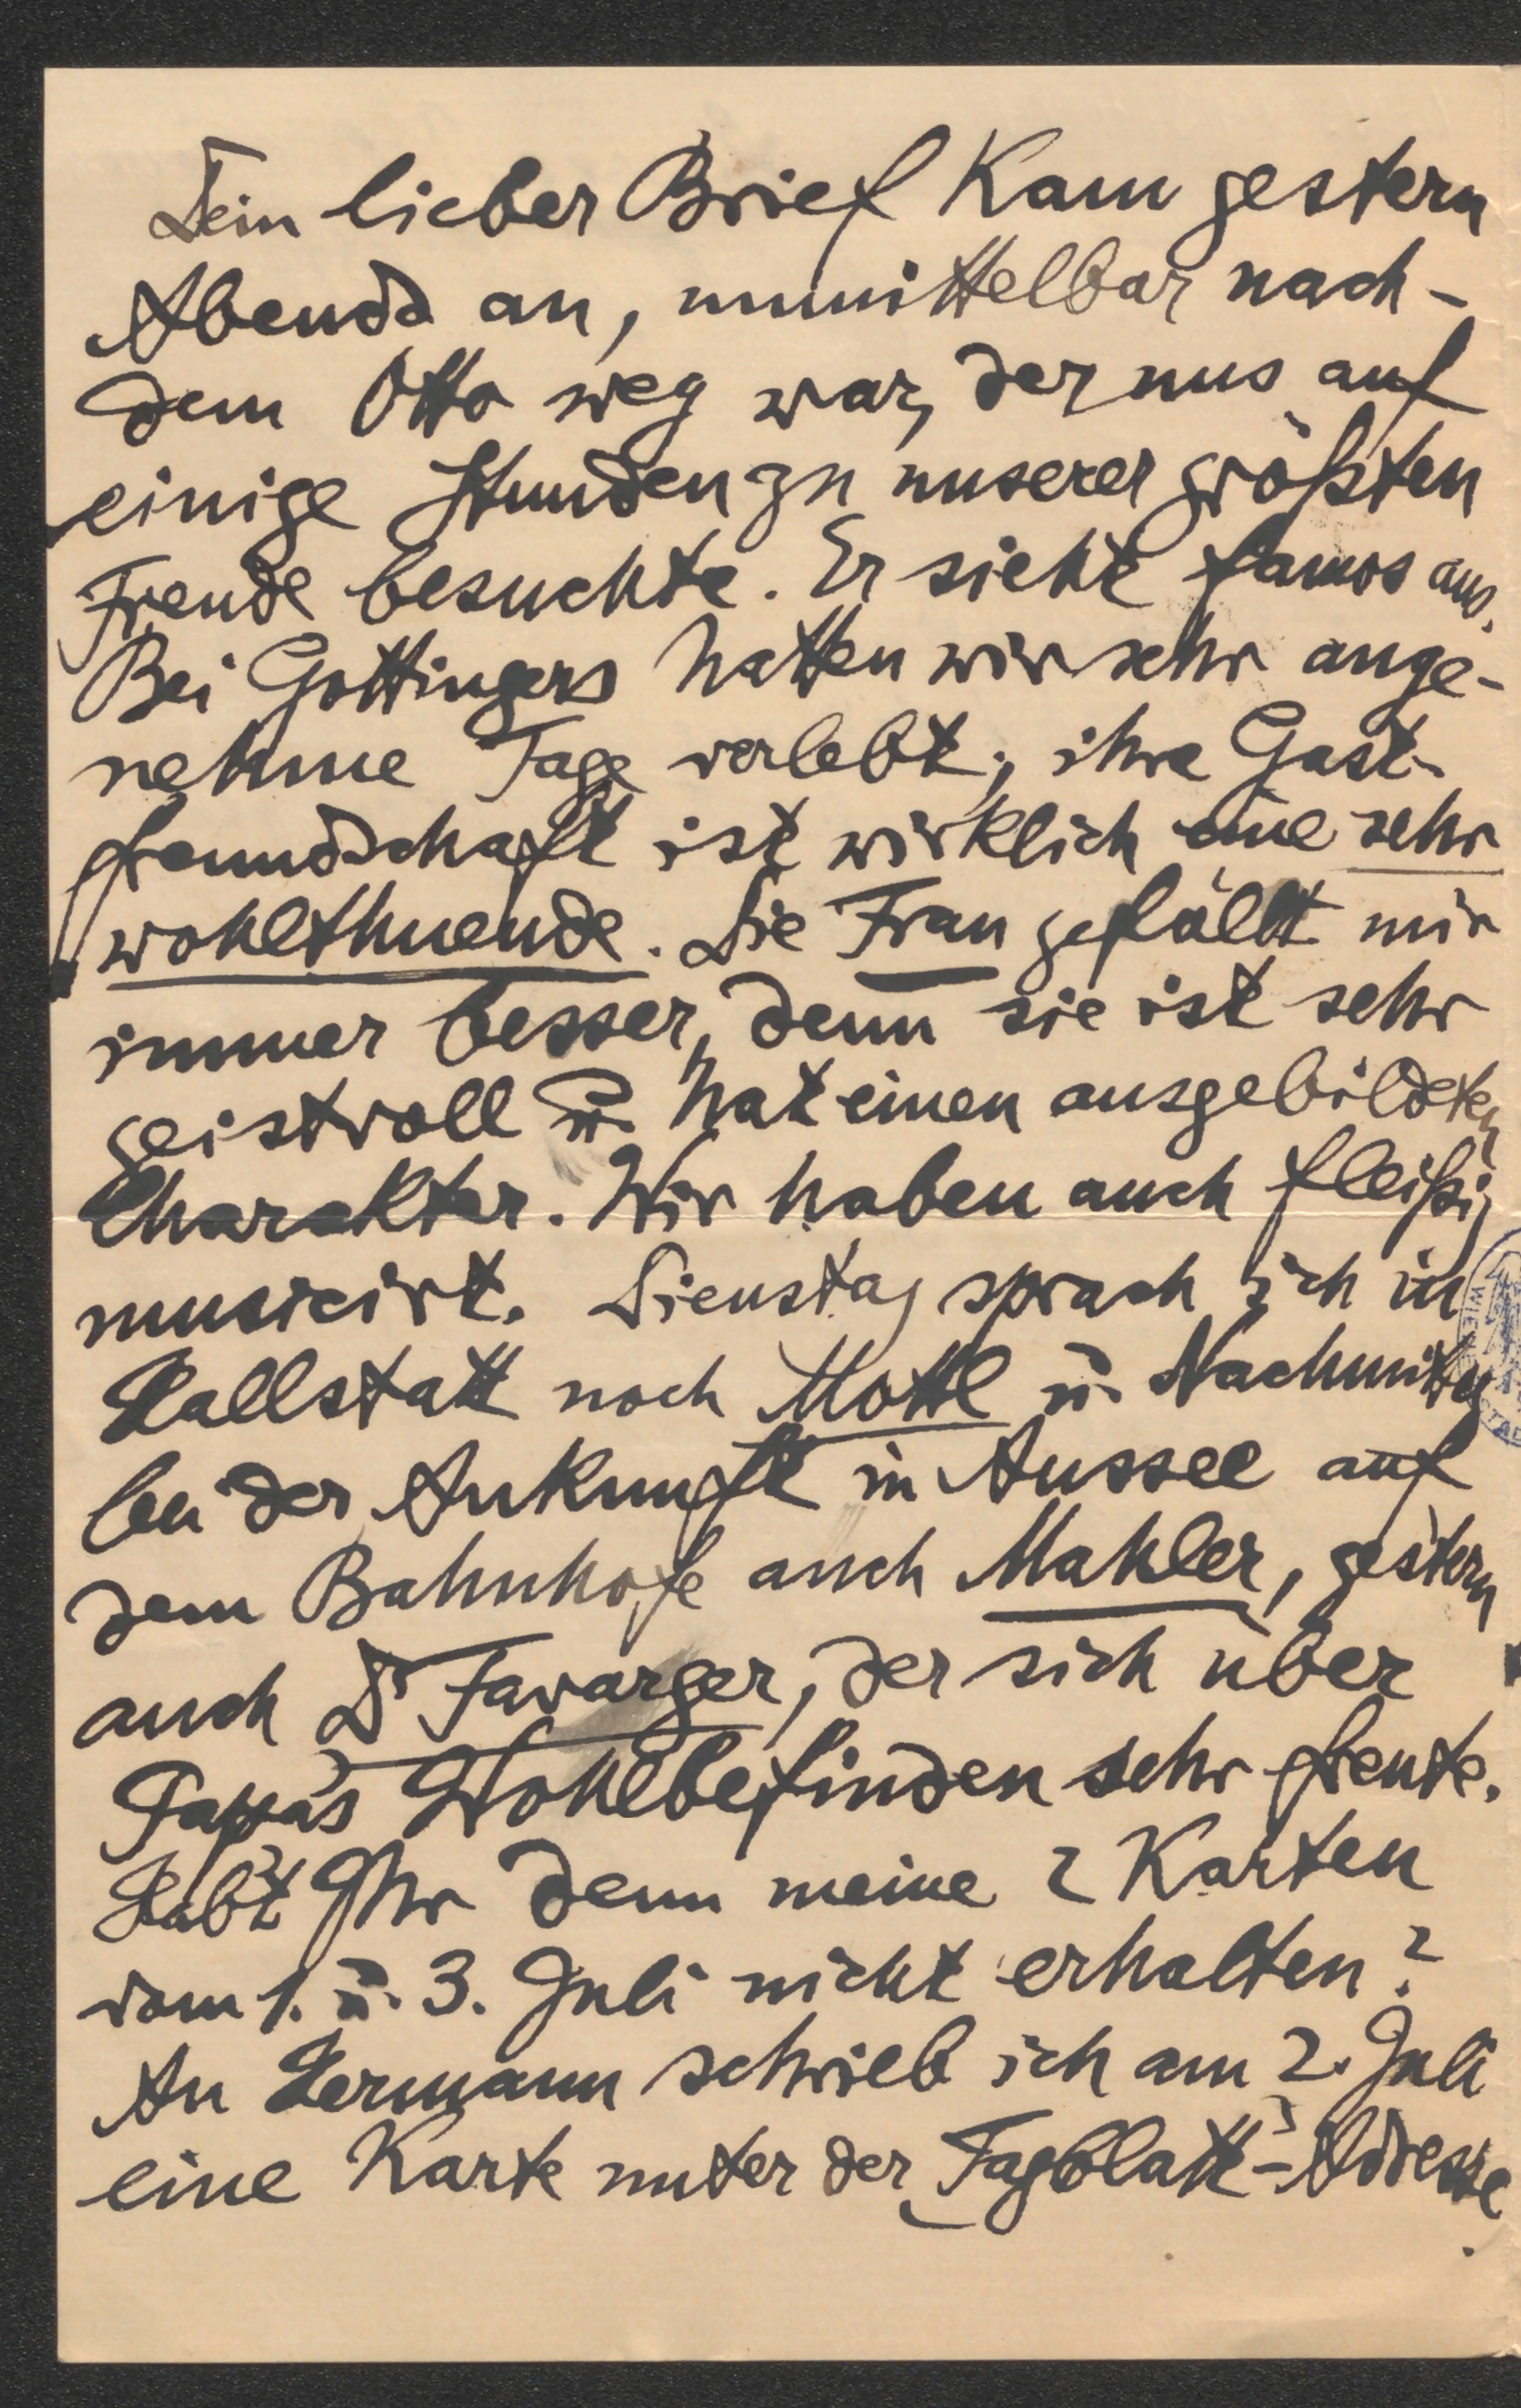 Dein lieber Brief kam gestern
Abends an, unmittelbar nach-
dem Otto weg war, der uns auf
einige Stunden zu unserer größten
Freude besuchte. Er sieht famos aus.
Bei Gottingers hatten wir sehr ange-
nehme Tage verlebt; ihre Gast-
freundschaft ist wirklich eine sehr
wohlthuende. Die Frau gefällt mir
immer besser, denn sie ist sehr
geistvoll u. hat einen ausgebildeten
Charakter. Wir haben auch fleißig
musicirt. Dienstag sprach ich in
Hallstatt noch Mottl u. Nachmittg
bei der Ankunft in Aussee auf
dem Bahnhofe auch Mahler, gestern
auch Dr Favarger, der sich über
Papa's Wohlbefinden sehr freute.
Habt Ihr denn meine 2 Karten
vom 1. u. 3. Juli nicht erhalten?
An Hermann schrieb ich am 2. Juli
eine Karte unter der „Tagblatt"-Adresse.